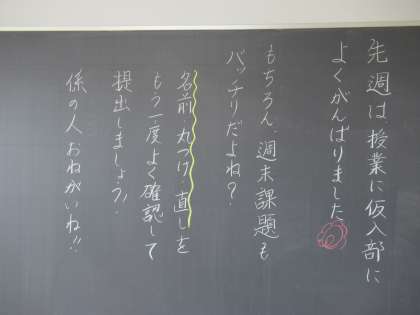 先週は、授業に仮入部に
よくがんばりました
もちろん、週末課題も
バッチリだよね？
名前・丸つけ・直しを
もう一度よく確認して
提出しましょう！
係の人おねがいね!!